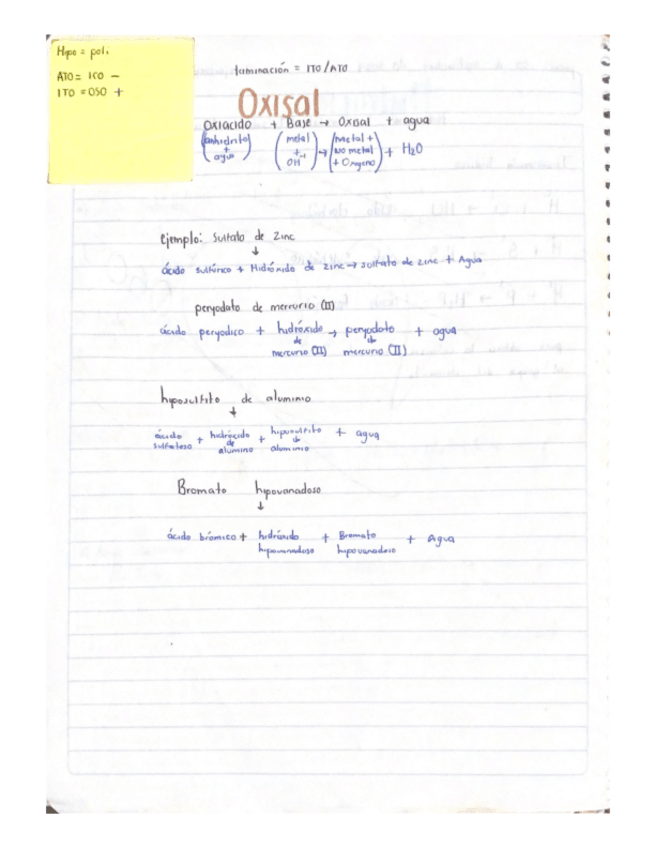 Hipo = poli
ATO = ICO -
ITO = OSO +
taminación = ITO/ATO
Oxisal
Oxiacido + Base → Oxisal + agua
(anhidrido + agua) (metal + OH⁻¹) → (metal + no metal + Oxigeno) + H₂O
ejemplo: Sulfato de Zinc
↓
ácido sulfúrico + Hidróxido de zinc → sulfato de zinc + Agua
peryodato de mercurio (II)
ácido peryodico + hidróxido de mercurio (II) → peryodato de mercurio (II) + agua
hiposulfito de aluminio
↓
ácido + hidróxido de alumino + hiposulfito ↓ aluminio + agua
Bromato hipovanadoso
↓
ácido brómico + hidróxido hipovanadoso + Bromato hipovanadoso + Agua